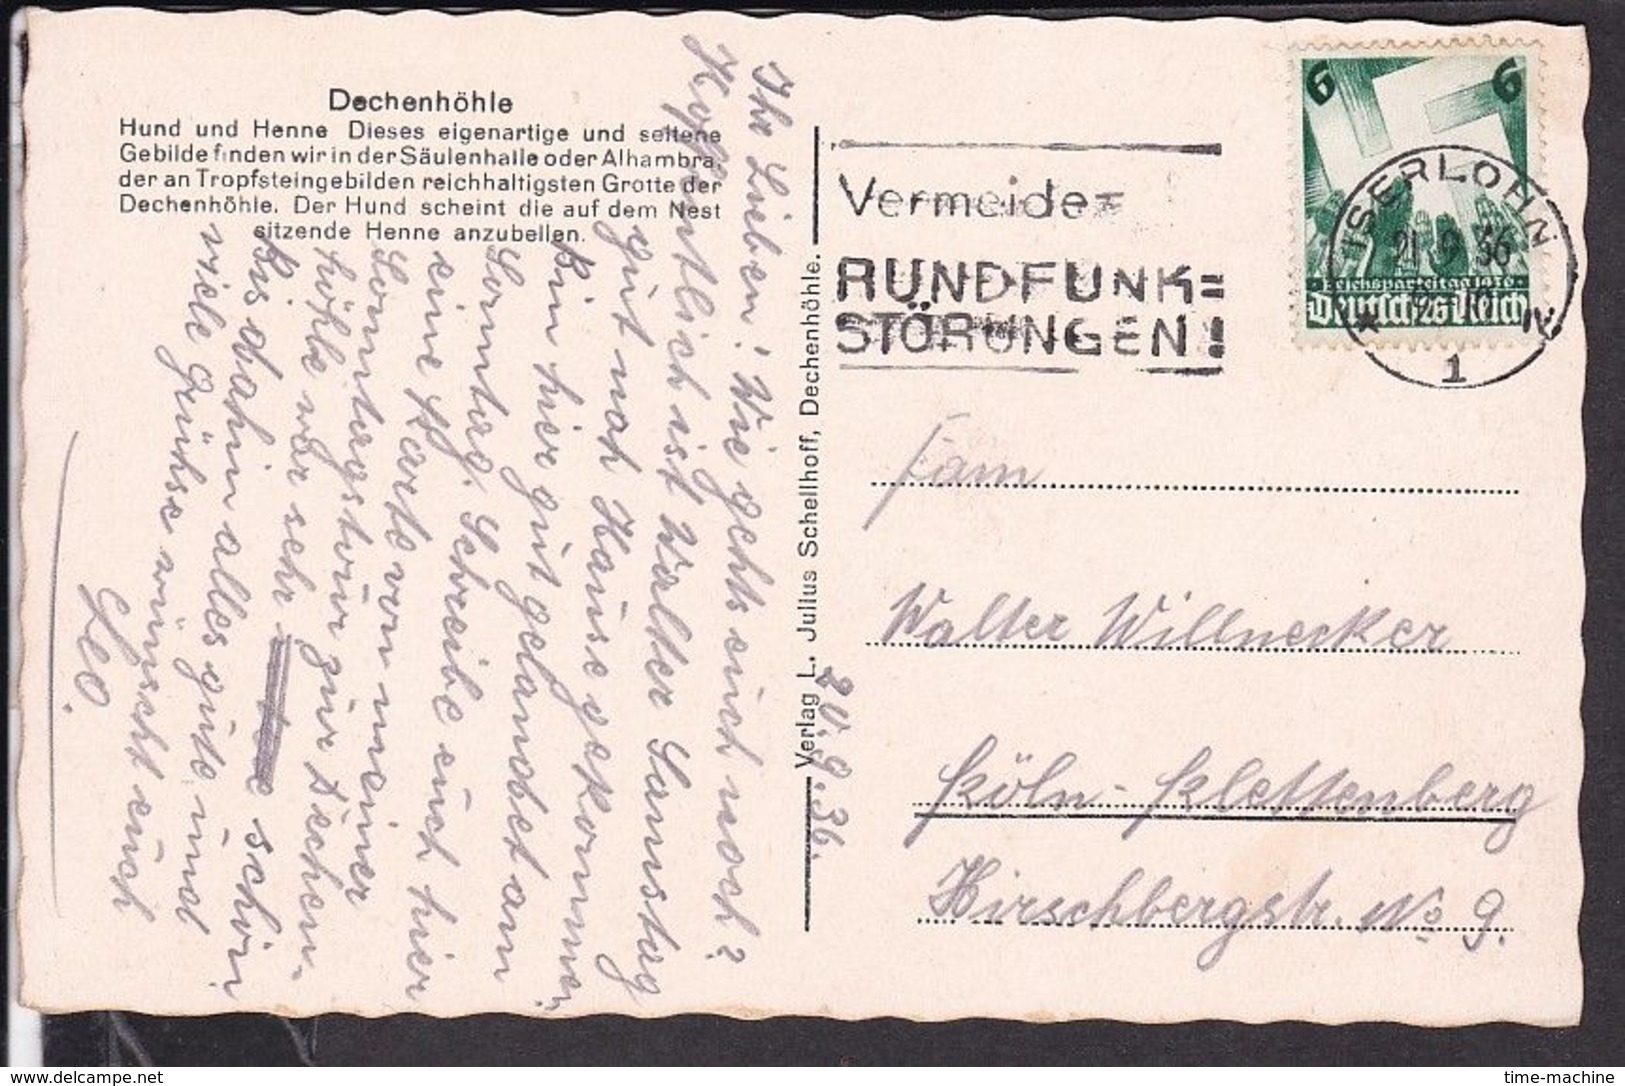 Dechenhöhle
Hund und Henne Dieses eigenartige und seltene
Gebilde finden wir in der Säulenhalle oder Alhambra,
der an Tropfsteingebilden reichhaltigsten Grotte der
Dechenhöhle. Der Hund scheint die auf dem Nest
sitzende Henne anzubellen.
Ihr Lieben! Wie gehts euch noch?
Hoffentlich ist Walter Samstag
gut nach Hause gekommen.
Bin hier gut gelandet am
Sonntag. Schreibe euch hier
eine Karte von meiner
Sonntagstour zur Dechen-
höhle war sehr schön
Bis dahin alles gute und
viele Grühse wünscht euch
Leo.
Verlag L. Julius Schellhoff, Dechenhöhle.
20.9.36.
Vermeide=
RUNDFUNK=
STÖRUNGEN!
6 6
Reichsparteitag 1936
Deutsches Reich
ISERLOHN
21.9.36
* 1
Fam
Walter Willnecker
Köln-Klettenberg
Hirschbergstr. No 9.
delcampe.net
time-machine